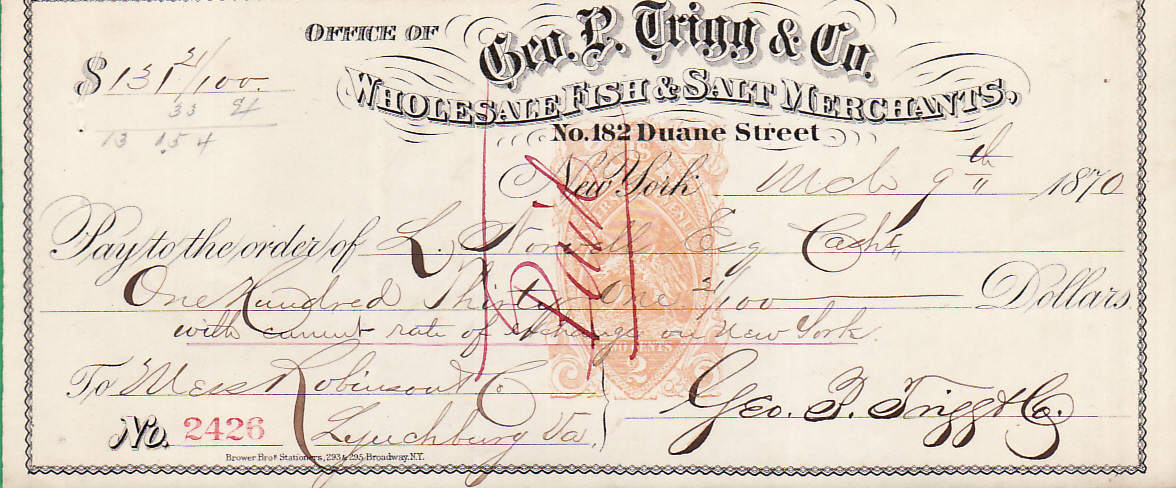 OFFICE OF
Geo. P. Trigg & Co.
WHOLESALE FISH & SALT MERCHANTS,
No. 182 Duane Street
$ 131 21/100.
33 
13 154
New York Mch 9th 1870
Pay to the order of L. Norvell Esq Cashr
One Hundred Thirty One 21/100 Dollars
with current rate of exchange on New York.
To Mess Robinson & Co
Lynchburg Va.
Geo. P. Trigg & Co.
No. 2426
Brower Bros Stationers, 293 & 295 Broadway, N.Y.
TWO CENTS
2